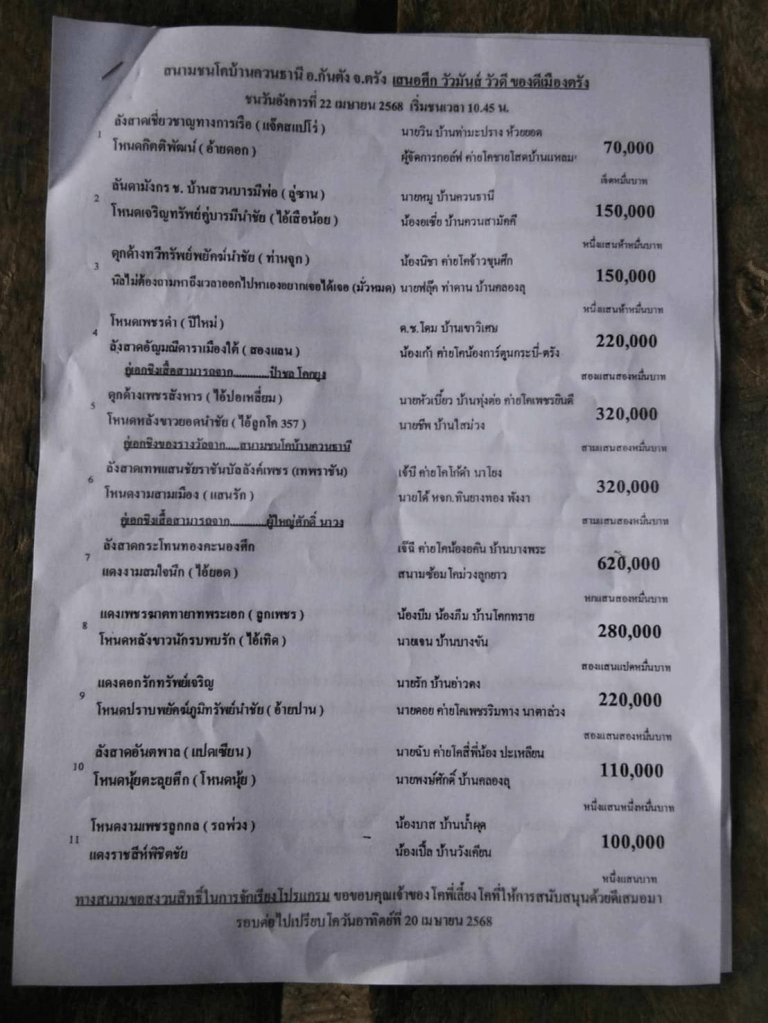 สนามชนโคบ้านควนธานี อ.กันตัง จ.ตรัง เสนอศึก วัวมันส์ วัวดี ของดีเมืองตรัง
ชนวันอังคารที่ 22 เมษายน 2568 เริ่มชนเวลา 10.45 น.
1 ลังสาดเชี่ยวชาญทางการเรือ ( แจ็คสแปโร่ ) นายวิน บ้านท่ามะปราง ห้วยยอด
โหนดกิตติพัฒน์ ( อ้ายดอก ) ผู้จัดการกอล์ฟ ค่ายโคชายโสดบ้านแหลม 70,000
เจ็ดหมื่นบาท
2 ลันดามังกร ช. บ้านสวนบารมีพ่อ ( ลู่ซาน ) นายหมู บ้านควนธานี
โหนดเจริญทรัพย์คู่บารมีนำชัย ( ไอ้เสือน้อย ) น้องอเซี่ย บ้านควนสามัคคี 150,000
หนึ่งแสนห้าหมื่นบาท
3 ดุกด้างทวีทรัพย์พยัคฆ์นำชัย ( ท่านจุก ) น้องนิชา ค่ายโคจ้าวขุนศึก
นิลไม่ต้องถามหาถึงเวลาออกไปหาเองอยากเจอได้เจอ (มั่วหมด) นายฟลุ๊ค ท่าดาน บ้านคลองลุ 150,000
หนึ่งแสนห้าหมื่นบาท
4 โหนดเพชรดำ ( ปีใหม่ ) ด.ช.โดม บ้านเขาวิเศษ
ลังสาดอัญมณีดาราเมืองใต้ ( สองแสน ) น้องเก้า ค่ายโคน้องการ์ตูนกระบี่-ตรัง 220,000
คู่เอกชิงเสื้อสามารถจาก............ป้าชล โคกยูง สองแสนสองหมื่นบาท
5 ดุกด้างเพชรสังหาร ( ไอ้ปอเหลี่ยม ) นายหัวเบี้ยว บ้านทุ่งต่อ ค่ายโคเพชรยินดี
โหนดหลังขาวยอดนำชัย ( ไอ้ลูกโค 357 ) นายชีพ บ้านไสม่วง 320,000
คู่เอกชิงของรางวัลจาก.....สนามชนโคบ้านควนธานี สามแสนสองหมื่นบาท
6 ลังสาดเทพแสนชัยราชันบัลลังค์เพชร (เทพราชัน) เจ้บี ค่ายโคโก้ดำ นาโยง
โหนดงามสามเมือง ( แสนรัก ) นายโต้ หจก.ทินยางทอง พังงา 320,000
คู่เอกชิงเสื้อสามารถจาก............ผู้ใหญ่ศักดิ์ นาวง สามแสนสองหมื่นบาท
7 ลังสาดกระโทนทองคะนองศึก เจ๊ฉี ค่ายโคน้องอคิน บ้านบางพระ
แดงงามสมใจนึก ( ไอ้ยอด ) สนามซ้อมโคม่วงลูกยาว 620,000
หกแสนสองหมื่นบาท
8 แดงเพชรฆาตทายาทพระเอก ( ลูกเพชร ) น้องบีม น้องภีม บ้านโคกทราย
โหนดหลังขาวนักรบพบรัก ( ไอ้เทิด ) นายเจน บ้านบางขัน 280,000
สองแสนแปดหมื่นบาท
9 แดงดอกรักทรัพย์เจริญ นายรัก บ้านอ่าวตง
โหนดปราบพยัคฆ์ภูมิทรัพย์นำชัย ( อ้ายปาน ) นายดอย ค่ายโคเพชรริมทาง นาตาล่วง 220,000
สองแสนสองหมื่นบาท
10 ลังสาดอันตพาล ( แปดเซียน ) นายฉับ ค่ายโคสี่พี่น้อง ปะเหลียน
โหนดนุ้ยตะลุยศึก ( โหนดนุ้ย ) นายพงษ์ศักดิ์ บ้านคลองลุ 110,000
หนึ่งแสนหนึ่งหมื่นบาท
11 โหนดงามเพชรลูกกล ( รถพ่วง ) น้องบาส บ้านน้ำผุด
แดงราชสีห์พิชิตชัย น้องเปิ้ล บ้านวังเคียน 100,000
หนึ่งแสนบาท
ทางสนามขอสงวนสิทธิ์ในการจัดเรียงโปรแกรม ขอขอบคุณเจ้าของโคพี่เลี้ยงโคที่ให้การสนับสนุนด้วยดีเสมอมา
รอบต่อไปเปรียบโควันอาทิตย์ที่ 20 เมษายน 2568